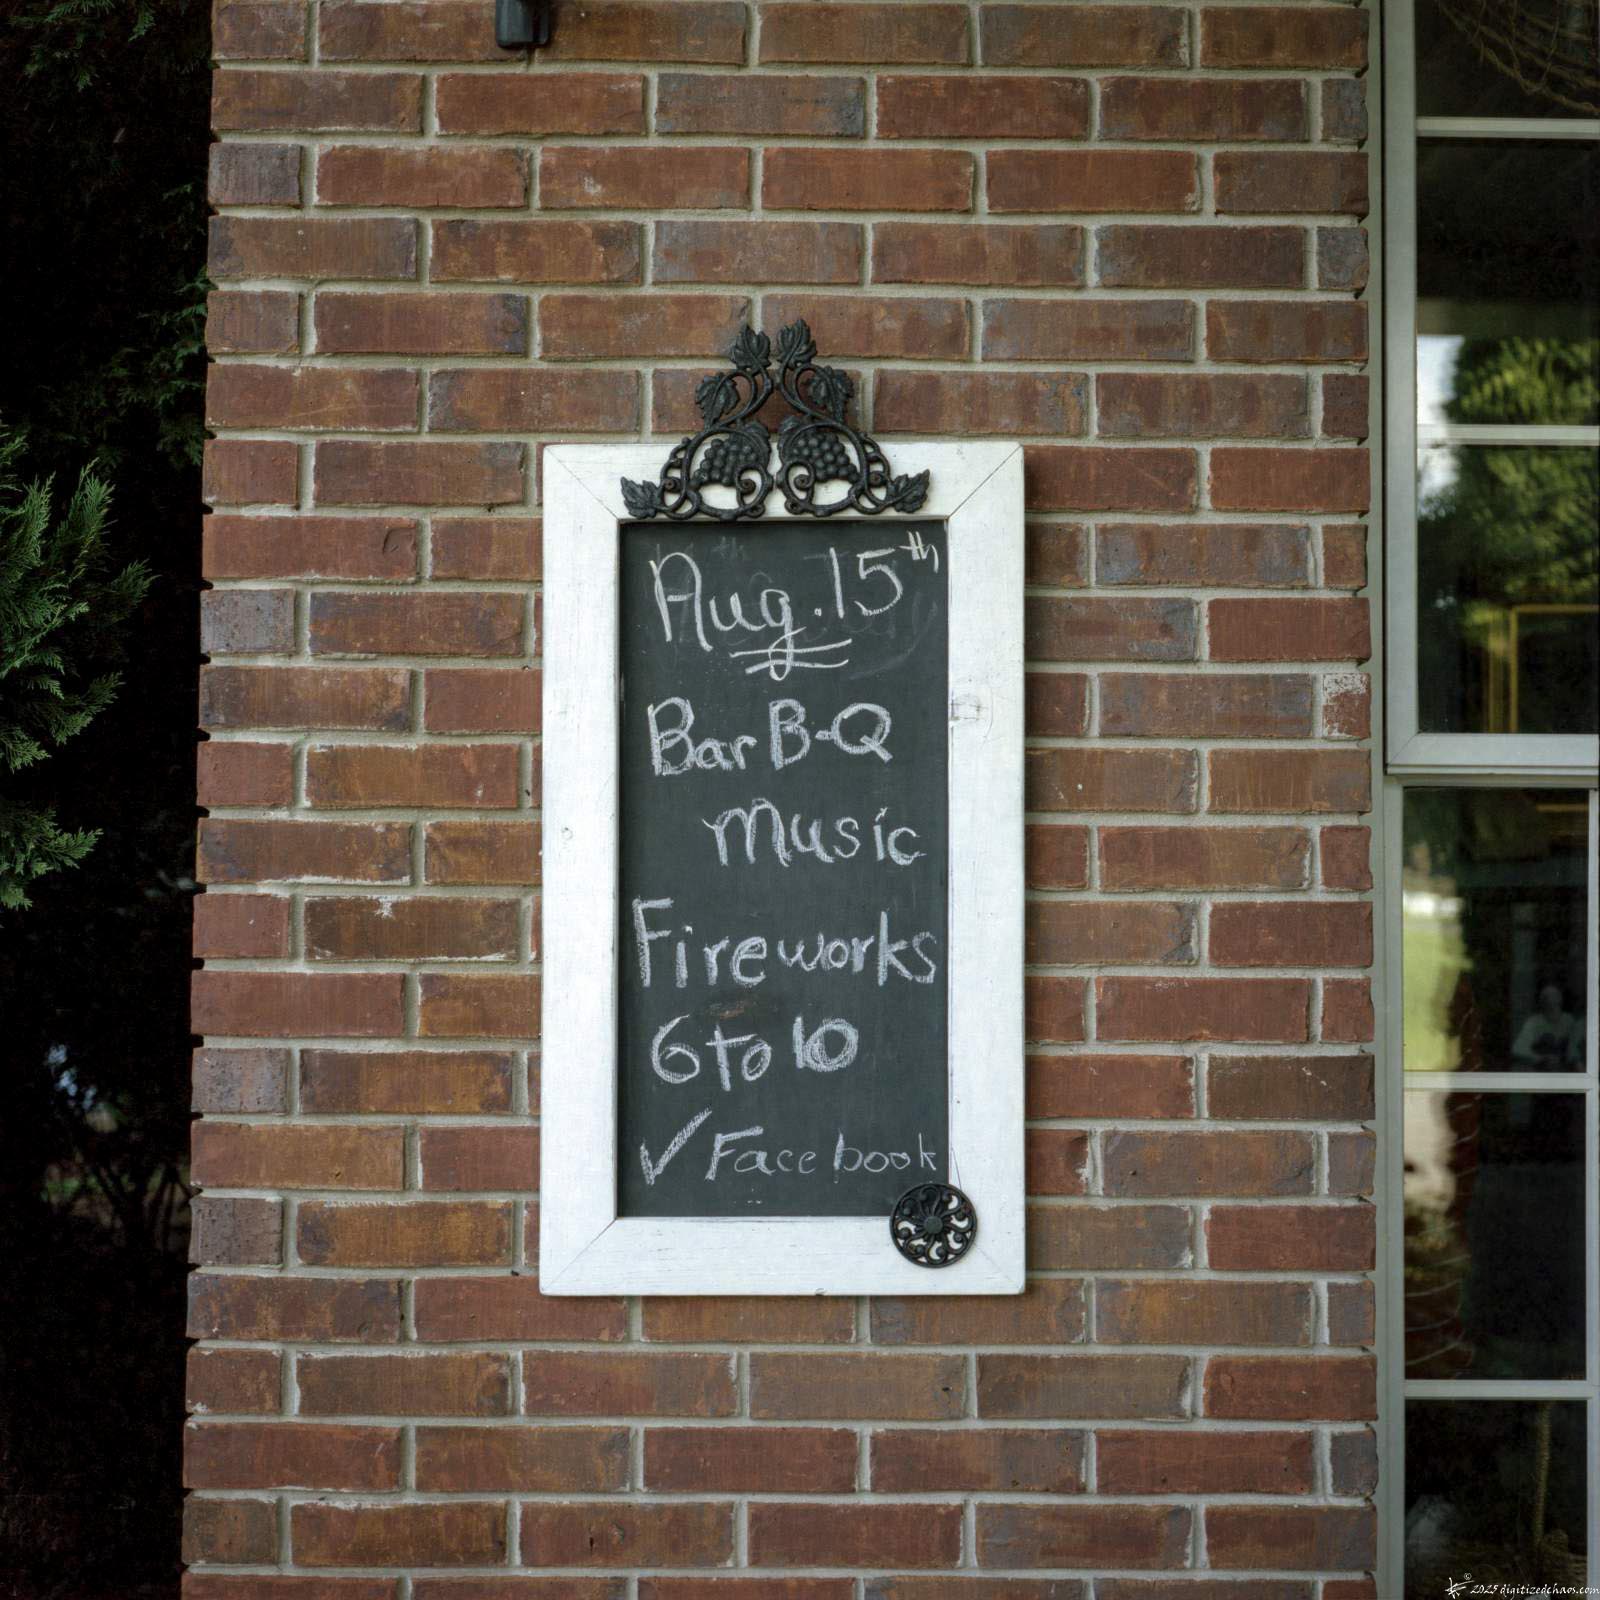 Aug. 15th
Bar B-Q
Music
Fireworks
6 to 10
✓ Facebook
© 2025 digitizedchaos.com